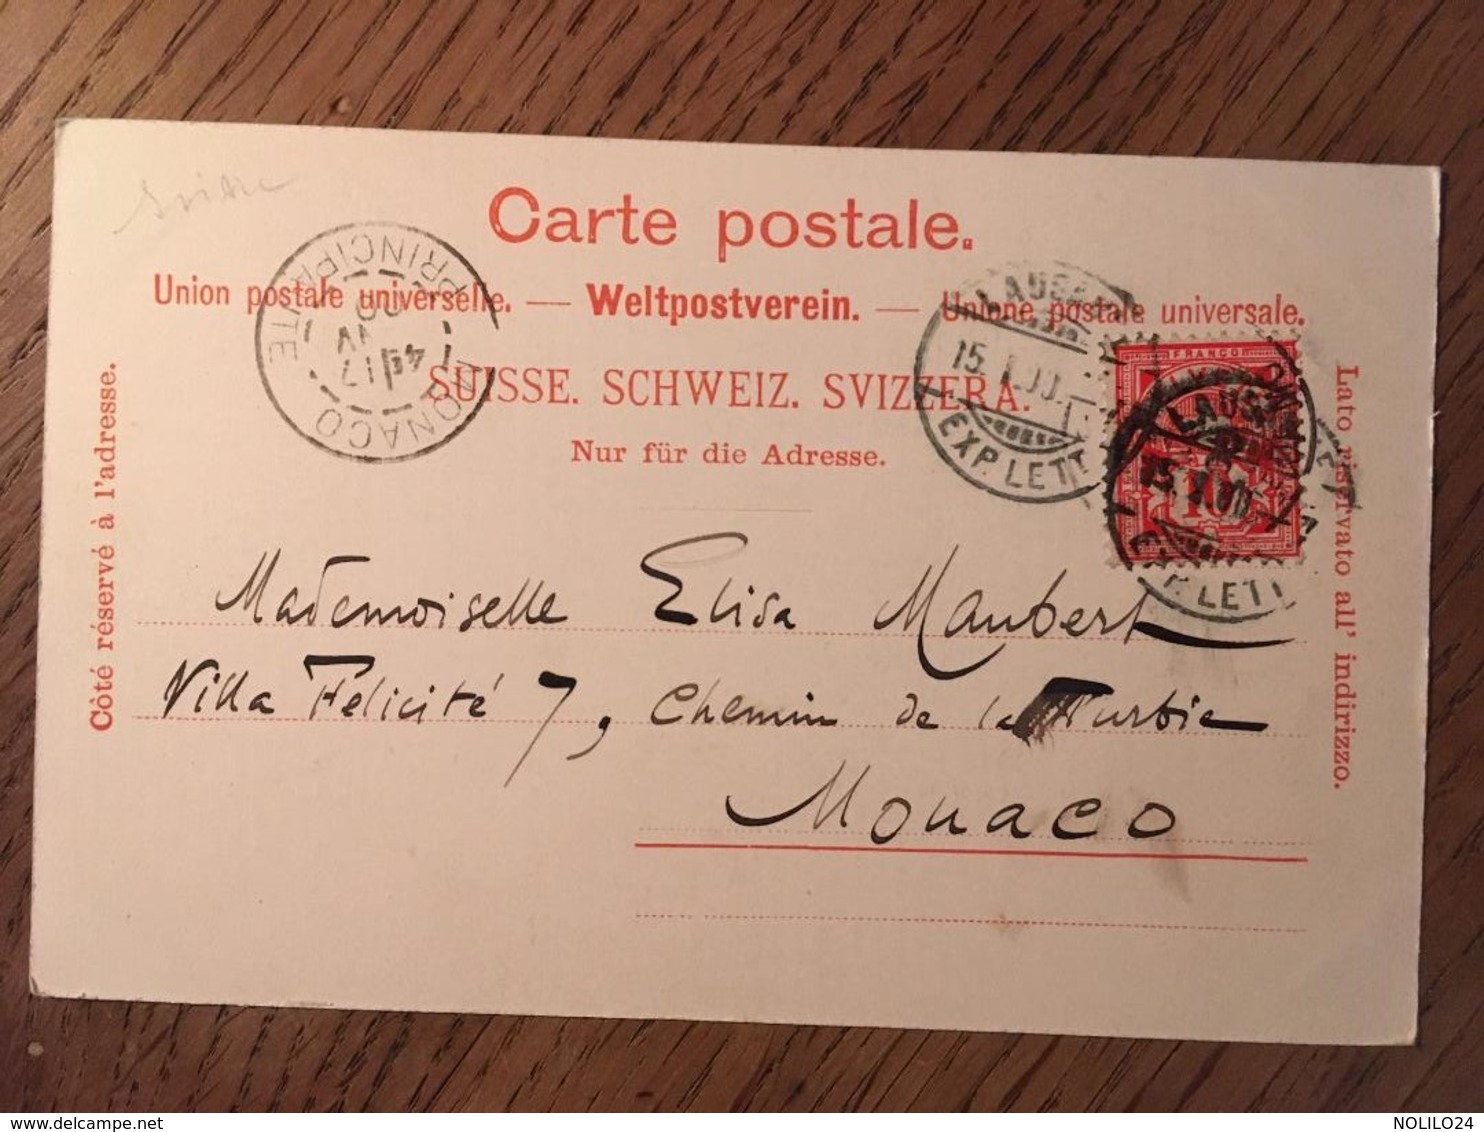 Suisse
Carte postale.
Union postale universelle. — Weltpostverein. — Unione postale universale.
SUISSE. SCHWEIZ. SVIZZERA.
Nur für die Adresse.
Côté réservé à l'adresse.
Lato riservato all' indirizzo.
MONACO
PRINCIPAUTE
17
LAUSANNE
15. I. 00.
EXP. LETT.
FRANCO
10
LAUSANNE
15. I. 00.
EXP. LETT.
Mademoiselle Elisa Maubert
Villa Félicité 7, Chemin de la Turbie
Monaco
NOLILO24